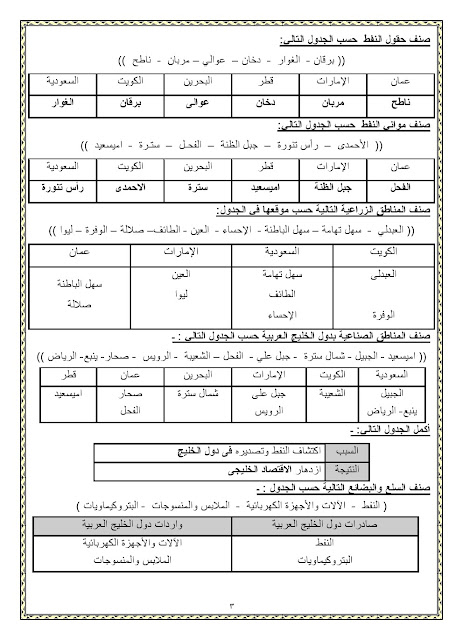 صنف حقول النفط حسب الجدول التالي:
(( برقان - الغوار - دخان – عوالي – مربان - ناطح ))
عمان الإمارات قطر البحرين الكويت السعودية
ناطح مربان دخان عوالى برقان الغوار
صنف موانى النفط حسب الجدول التالى:
(( الأحمدى – رأس تنورة – جبل الظنة – الفحل – سترة - اميسعيد ))
عمان الإمارات قطر البحرين الكويت السعودية
الفحل جبل الظنة اميسعيد سترة الاحمدى رأس تنورة
صنف المناطق الزراعية التالية حسب موقعها فى الجدول:
(( العبدلي - سهل تهامة – سهل الباطنة - الإحساء - العين - الطائف– صلالة – الوفرة – ليوا ))
الكويت السعودية الإمارات عمان
العبدلى سهل تهامة العين سهل الباطنة
الطائف ليوا صلالة
الوفرة الإحساء
صنف المناطق الصناعية بدول الخليج العربية حسب الجدول التالى : -
(( اميسعيد - الجبيل - شمال سترة - جبل علي - الفحل – الشعيبة - الرويس - صحار- ينبع- الرياض ))
السعودية الكويت الإمارات البحرين عمان قطر
الجبيل الشعيبة جبل على شمال سترة صحار اميسعيد
ينبع- الرياض الرويس الفحل
أكمل الجدول التالى: -
السبب اكتشاف النفط وتصديره فى دول الخليج
النتيجة ازدهار الاقتصاد الخليجى
صنف السلع والبضائع التالية حسب الجدول : -
( النفط - الآلات والأجهزة الكهربائية - الملابس والمنسوجات - البتروكيماويات )
صادرات دول الخليج العربية واردات دول الخليج العربية
النفط الآلات والأجهزة الكهربائية
البتروكيماويات الملابس والمنسوجات
٣